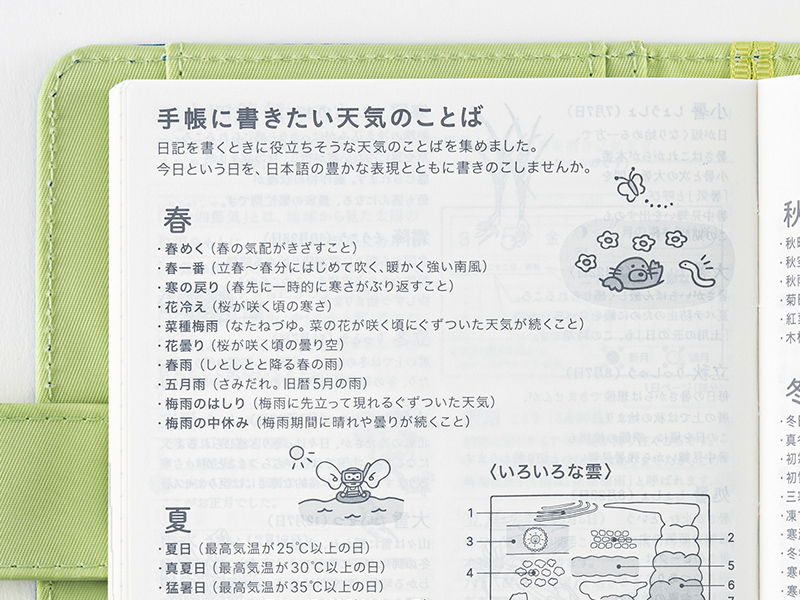 手帳に書きたい天気のことば
日記を書くときに役立ちそうな天気のことばを集めました。
今日という日を、日本語の豊かな表現とともに書きのこしませんか。
春
・春めく（春の気配がきざすこと）
・春一番（立春～春分にはじめて吹く、暖かく強い南風）
・寒の戻り（春先に一時的に寒さがぶり返すこと）
・花冷え（桜が咲く頃の寒さ）
・菜種梅雨（なたねづゆ。菜の花が咲く頃にぐずついた天気が続くこと）
・花曇り（桜が咲く頃の曇り空）
・春雨（しとしとと降る春の雨）
・五月雨（さみだれ。旧暦5月の雨）
・梅雨のはしり（梅雨に先立って現れるぐずついた天気）
・梅雨の中休み（梅雨期間に晴れや曇りが続くこと）
夏
・夏日（最高気温が25℃以上の日）
・真夏日（最高気温が30℃以上の日）
・猛暑日（最高気温が35℃以上の日）
〈いろいろな雲〉
1
2
3
4
5
6